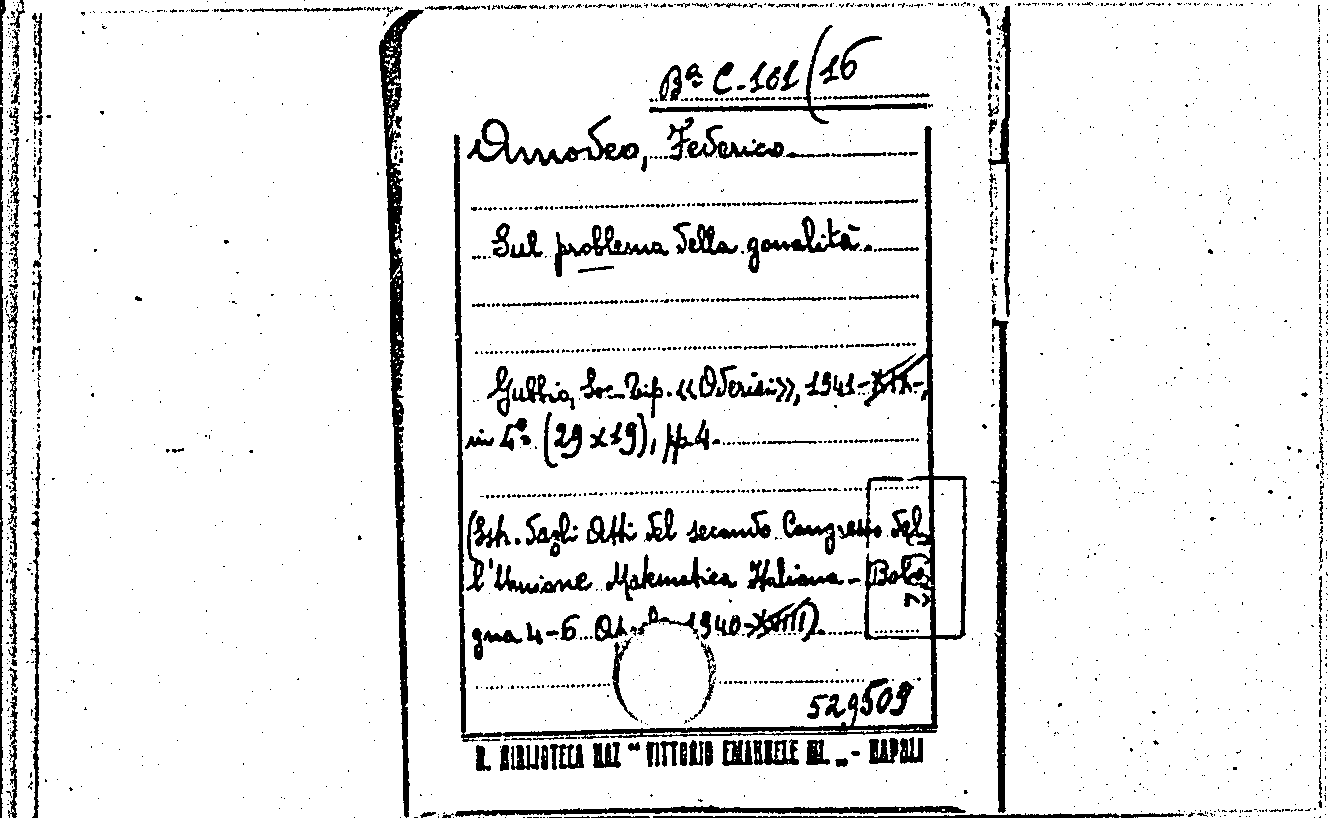 Bª C-101 (16
Amodeo, Federico
Sul problema della gonalità.
Gubbio, Soc. Tip. «Oderisi», 1941-XIX-,
in 4º (29 x 19), pp. 4.
(Estr. dagli Atti del secondo Congresso del
l'Unione Matematica Italiana - Bolo
gna 4-6 1940-XVIII).
529509
R. BIBLIOTECA NAZ " VITTORIO EMANUELE III. „ - NAPOLI